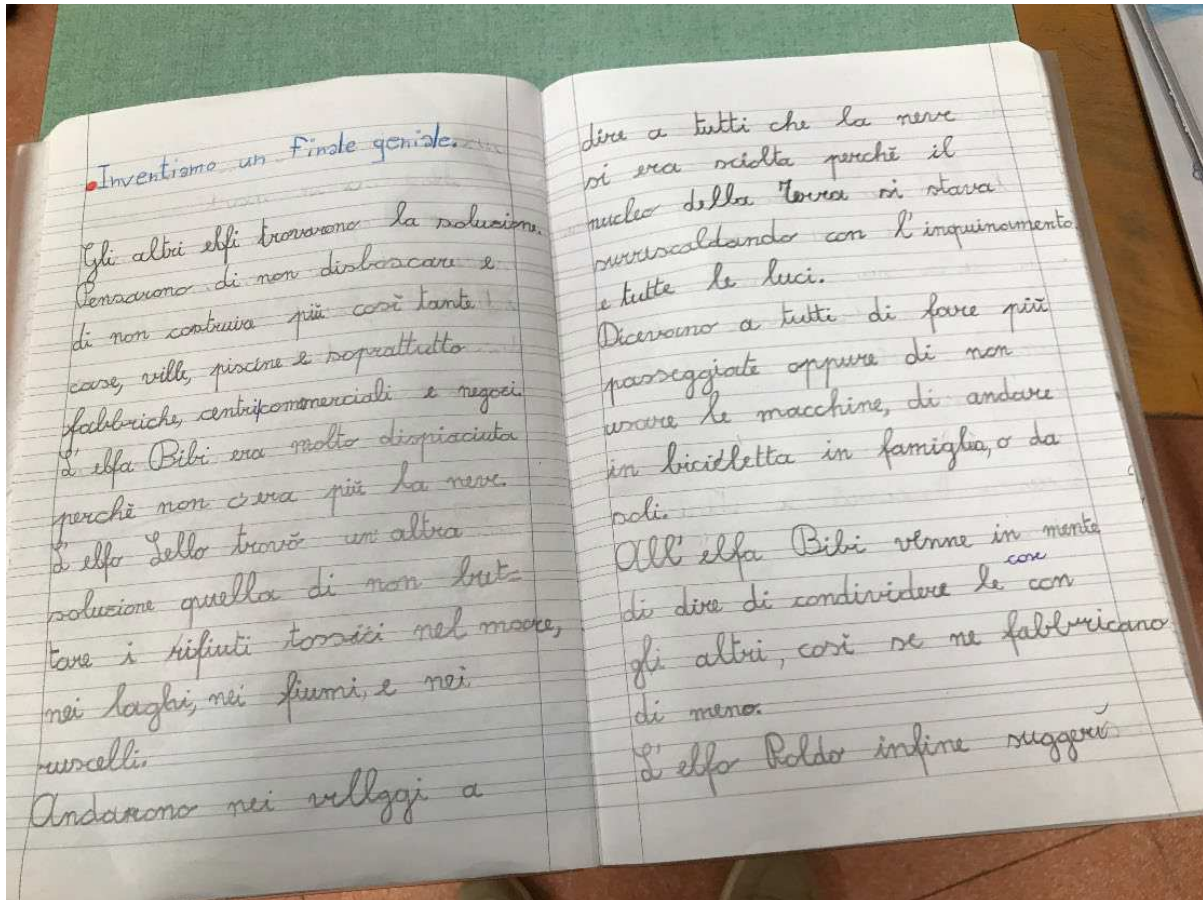 Inventiamo un finale geniale.
Gli altri elfi trovarono la soluzione.
Pensarono di non disboscare e
di non costruire più così tante
case, ville, piscine e soprattutto
fabbriche, centri commerciali e negozi.
L'elfa Bibi era molto dispiaciuta
perchè non c'era più la neve.
L'elfo Lello trovò un'altra
soluzione quella di non but=
tare i rifiuti tossici nel mare,
nei laghi, nei fiumi, e nei
ruscelli.
Andarono nei villggi a
dire a tutti che la neve
si era sciolta perchè il
nucleo della Terra si stava
surriscaldando con l'inquinamento
e tutte le luci.
Dicevano a tutti di fare più
passeggiate oppure di non
usare le macchine, di andare
in bicicletta in famiglia, o da
soli.
All'elfa Bibi venne in mente
di dire di condividere le cose con
gli altri, così se ne fabbricano
di meno.
L'elfo Roldo infine suggerì